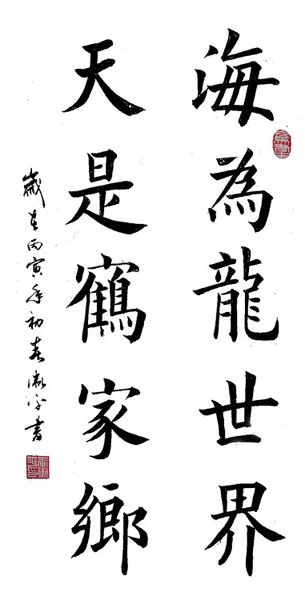 海為龍世界
天是鶴家鄉
歲在丙寅年初春淑平書